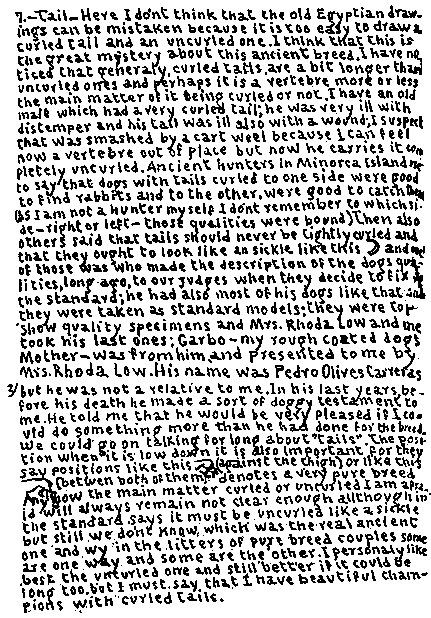 7.-Tail- Here I dont think that the old Egyptian draw-
ings can be mistaken because it is too easy to draw a
curled tail and an uncurled one. I think that this is
the great mystery about this ancient breed. I have no
ticed that generaly, curled tails, are a bit longer than
uncurled ones and perhaps it is a vertebre more or less
the main matter of it being curled or not. I have an old
male which had a very curled tail; he was very ill with
distemper and his tail was ill also with a wound; I suspect
that was smashed by a cart weel because I can feel
now a vertebre out of place but now he carries it com
pletely uncurled. Ancient hunters in Minorca Island
to say that dogs with tails curled to one side were good
to find rabbits and to the other, were good to catch them
(as I am not a hunter myself I dont remember to which si-
de-right or left- those qualities were bound) Then also
others said that tails should never be tightly curled and
that they ought to look like an sickle like this and
of those was who made the description of the dogs qua-
lities, long ago, to our judges when they decide to fix
the standard; he had also most of his dogs like that and
they were taken as standard models; they were top
show quality specimens and Mrs. Rhoda Low and me
took his last ones; Garbo-my rough coated dogs
Mother-was from him and presented to me by
Mrs. Rhoda Low. His name was Pedro Olives Carreras
3/ but he was not a relative to me. In his last years, be-
fore his death he made a sort of doggy testament to
me. He told me that he would be very pleased if I co-
uld do something more than he had done for the breed.
We could go on talking for long about "tails". The posi-
tion when it is low down it is also important for they
say positions like this (against the thigh) or like this
(between both of them) denotes a very pure breed
how the main matter curled or uncurled I am afra-
id will always remain not clear enough although in
the standard says it must be uncurled like a sickle
but still we dont know, which was the real ancient
one and wy in the litters of pure breed couples some
are one way and some are the other. I personaly like
best the unturled one and still better if it could be
long too, but I must say that I have beautiful cham-
pions with curled tails.